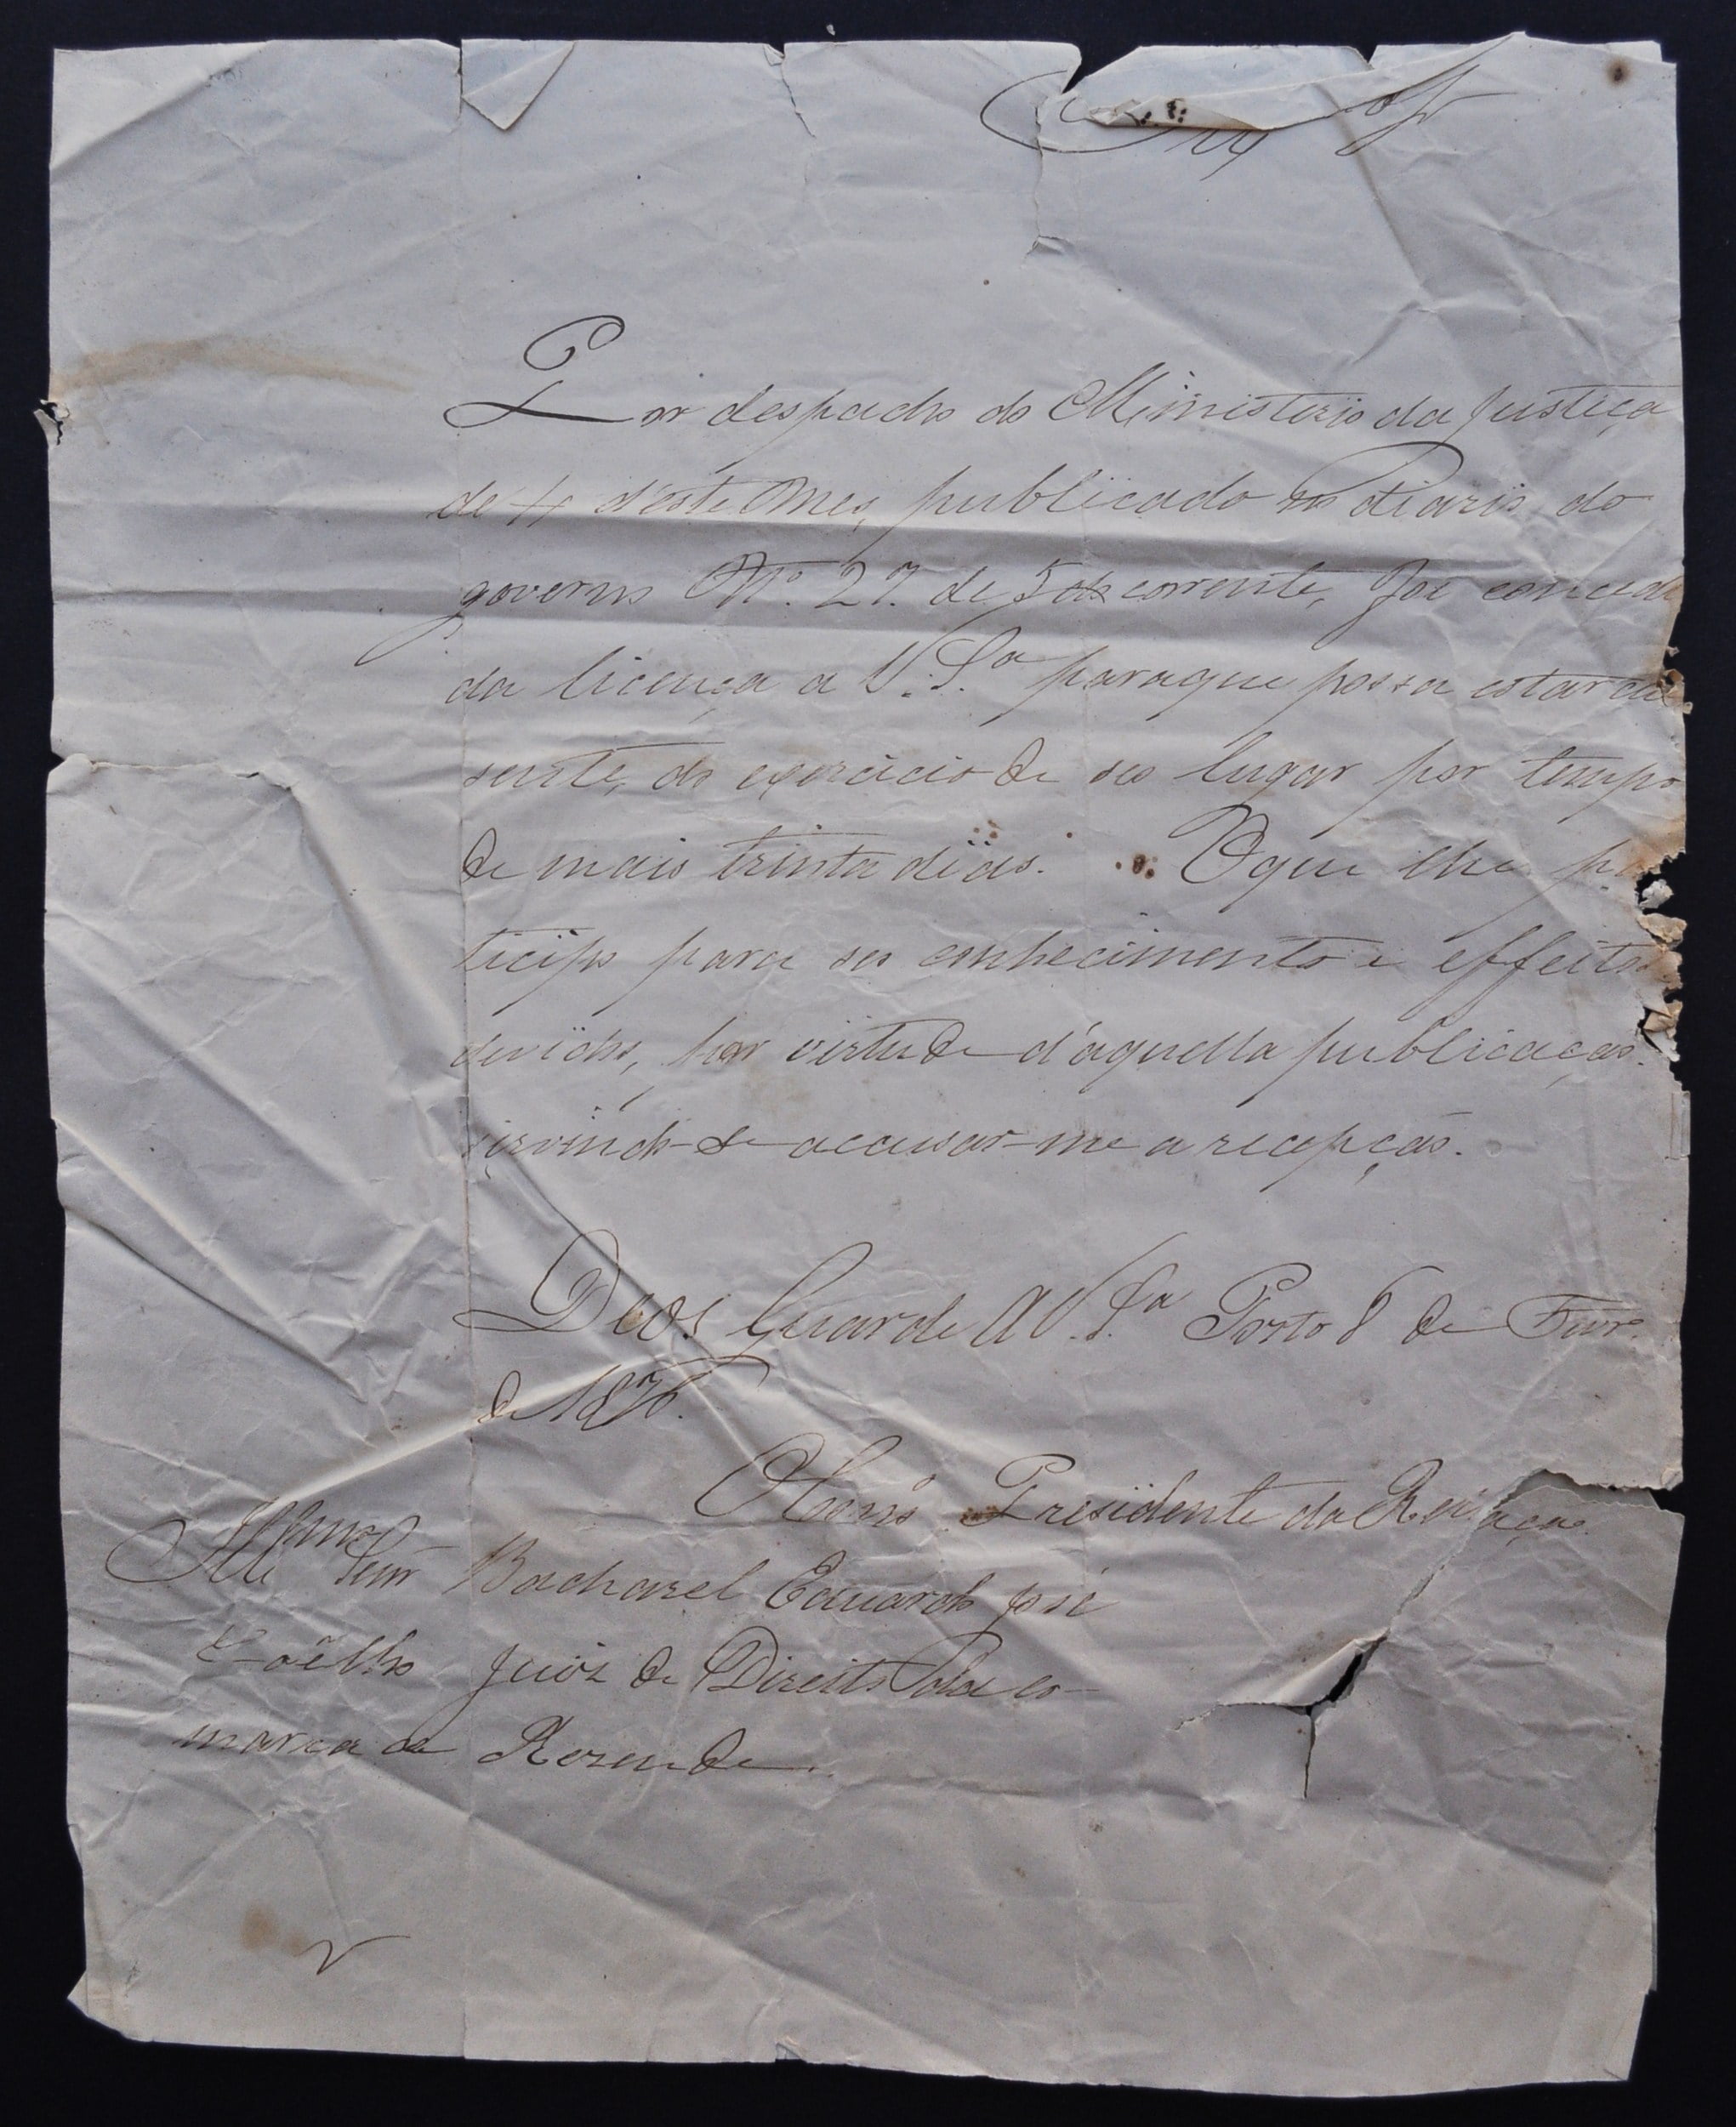 Por despacho do Ministerio da Justiça
de 4 d'este Mes, publicado no Diario do
governo Nº. 27. de 5 do corrente, foi concedi
da licença a V. S.ª para que possa estar au
sente, do exercicio de seo lugar por tempo
de mais trinta dias. O que lhe par
ticipo para seo conhecimento e effeitos
devidos, por virtude d'aquella publicação.
sirvindo-se accusar-me a recepção.
Deos Guarde a V. S.ª Porto 8 de Fevrº.
de 1876.
Presidente da Relação.
Illmo Senr Bacharel Eduardo José
Coêlho Juiz de Direito da co-
marca de Rezende.